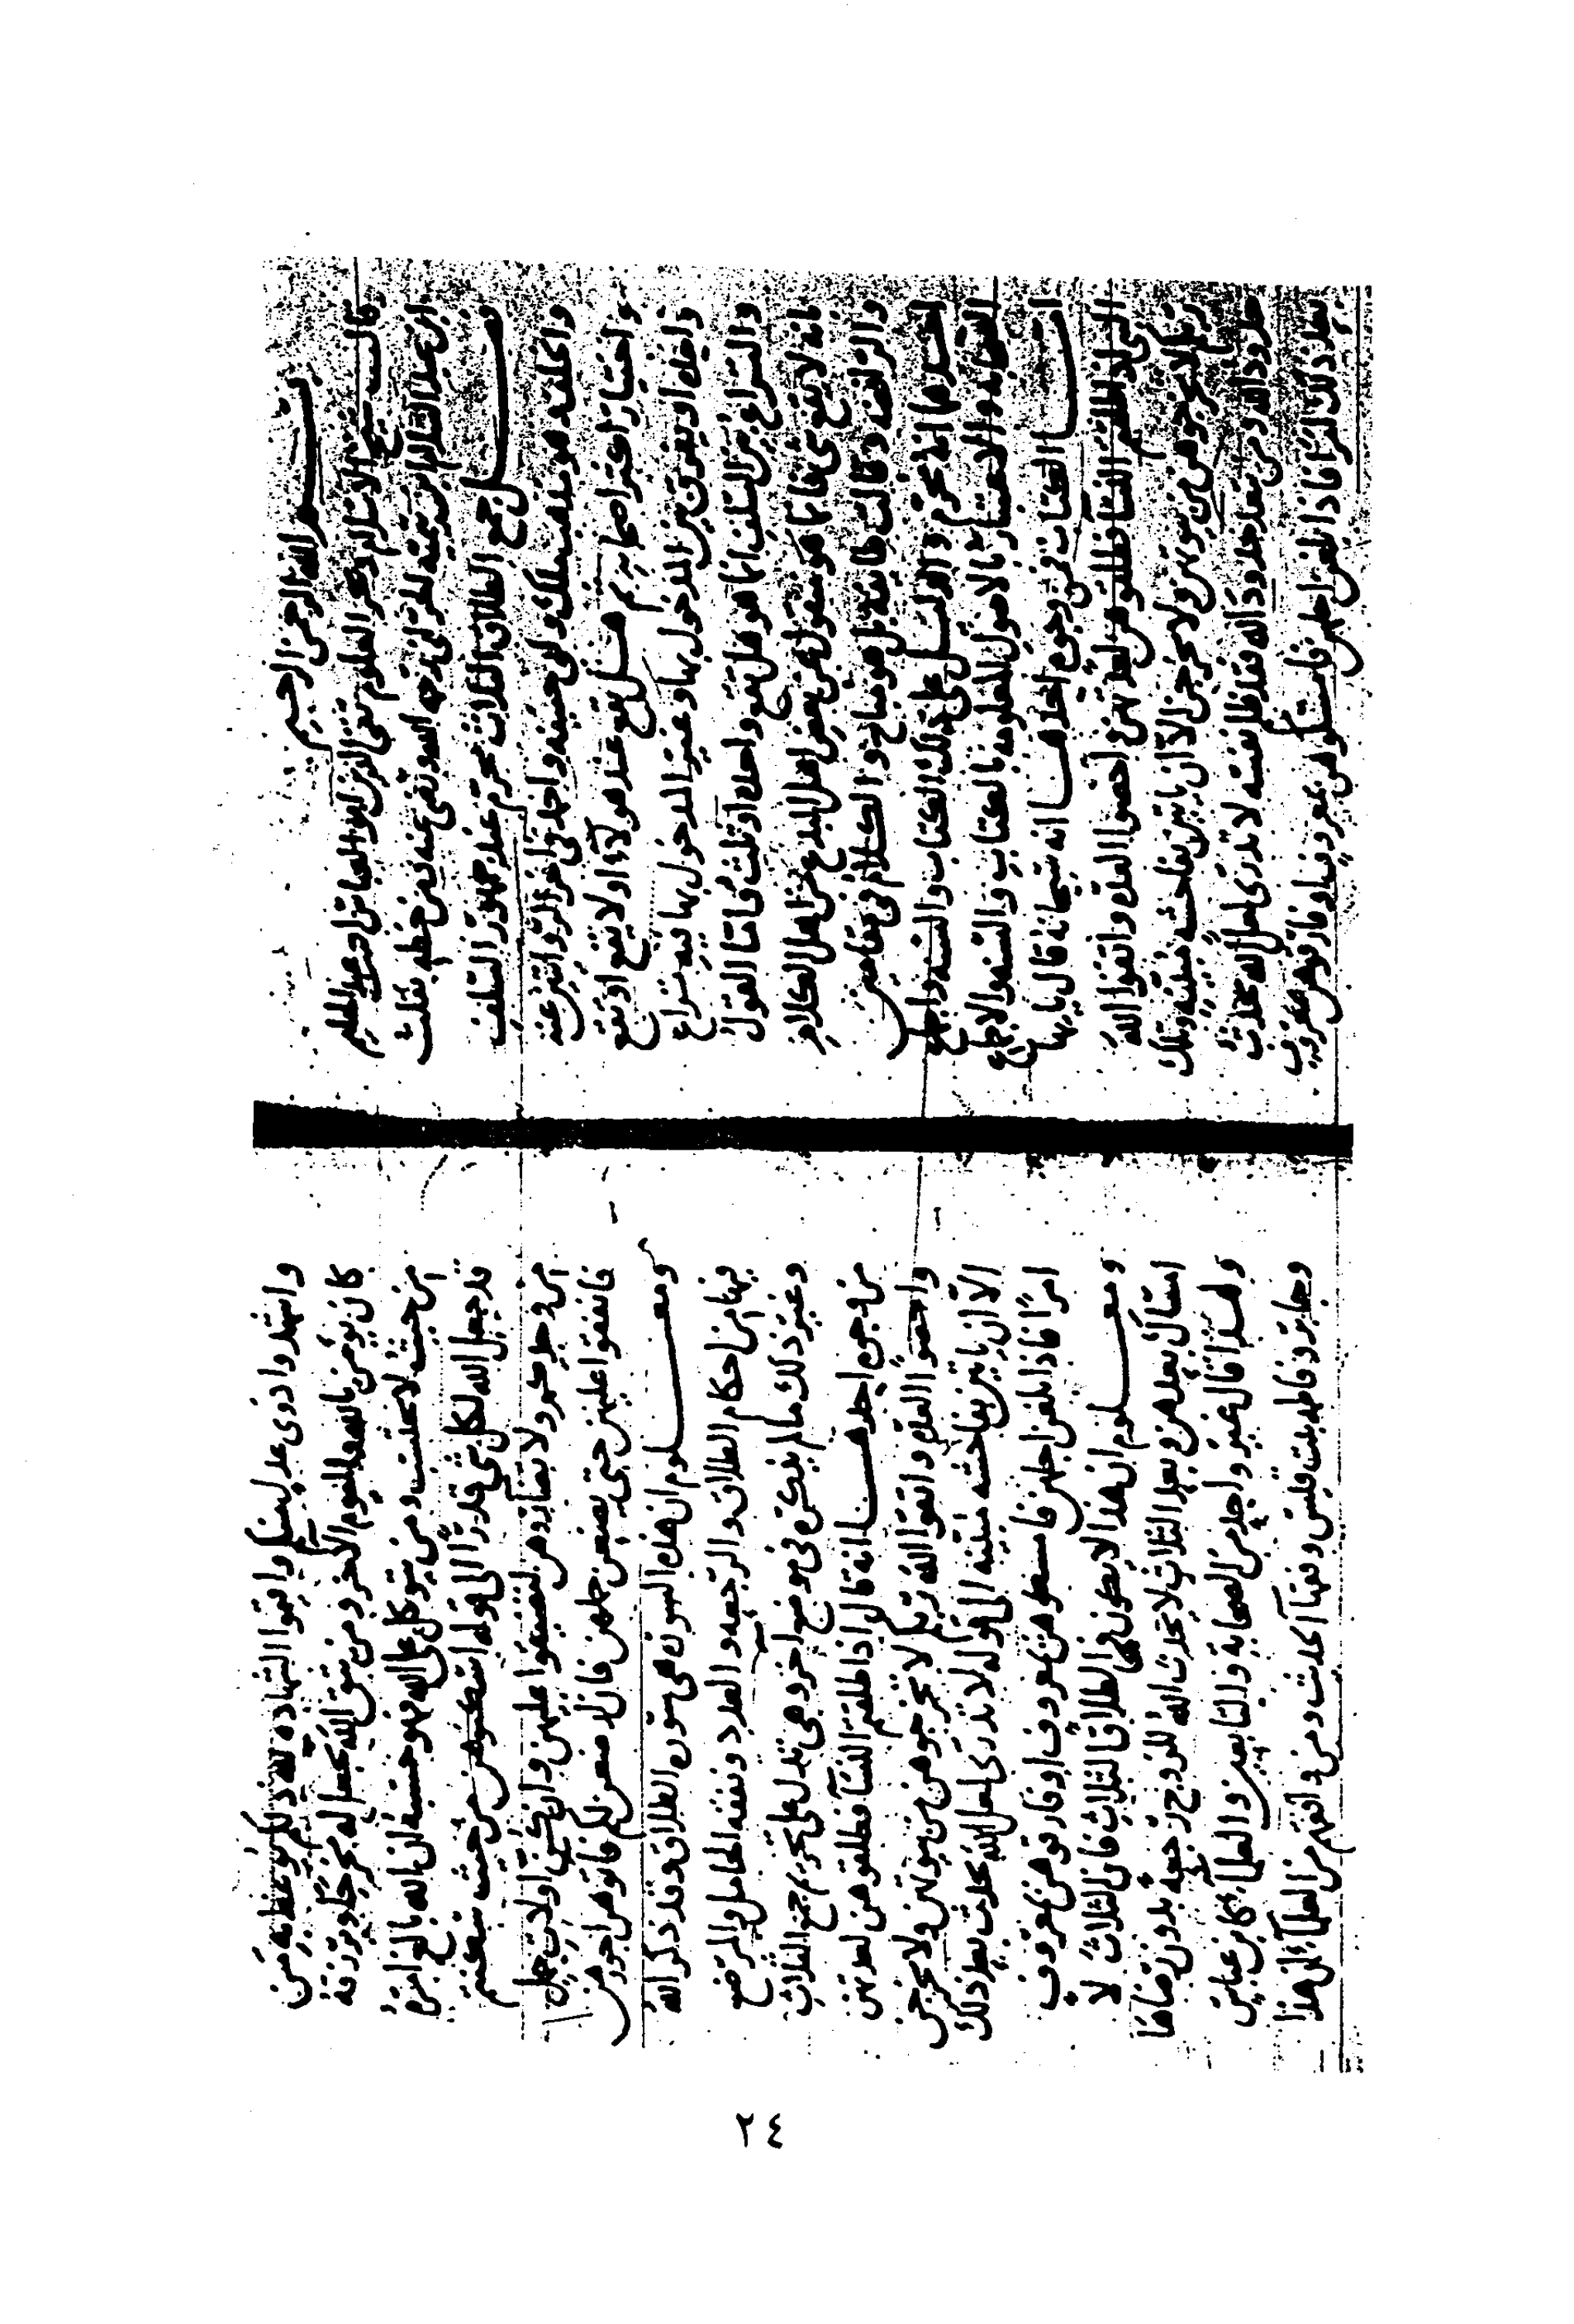 بسم الله الرحمن الرحيم
قال شيخ الاسلام وبحر العلوم تقي الدين ابو العباس احمد بن عبد الحليم
ابن عبد السلام ابن تيميه الحراني رحمه الله ورضي عنه من خطه نقلت
فصل جمع الطلاق الثلاث محرم عند جمهور السلف
والخلف وهو مذهب ملك وابي حنيفه واحمد في اخر الروايتين عنه
واختيار اكثر اصحابه ثم هل يقع عند هولاء او لا يقع او تقع
واحده او يفرق بين المدخول بها وغير المدخول بها فيه نزاع
والنزاع بين السلف انما هو هل تقع واحده او ثلث فاما القول
بانه لا يقع شي فانما هو منقول عن بعض اهل البدع من اهل الكلام
والرافضه وقالت طايفه بل هو مباح والكلام في مقامين
احدهما انه محرم والدليل على ذلك الكتاب والسنه واجماع
الصحابه والاعتبار بالاصول المعلومه بالكتاب والسنه والاجماع
اما الكتاب فمن وجوه احدها انه سبحانه قال يايها
النبي اذا طلقتم النسا فطلقوهن لعدتهن واحصوا العده واتقوا الله
ربكم لا تخرجوهن من بيوتهن ولا يخرجن الا ان ياتين بفاحشه مبينه وتلك
حدود الله ومن يتعد حدود الله فقد ظلم نفسه لا تدري لعل الله يحدث
بعد ذلك امرا فاذا بلغن اجلهن فامسكوهن بمعروف او فارقوهن بمعروف
واشهدوا ذوي عدل منكم واقيموا الشهاده لله ذلكم يوعظ به من
كان يومن بالله واليوم الاخر ومن يتق الله يجعل له مخرجا ويرزقه
من حيث لا يحتسب ومن يتوكل على الله فهو حسبه ان الله بالغ امره
قد جعل الله لكل شي قدرا الى قوله اسكنوهن من حيث سكنتم
من وجدكم ولا تضاروهن لتضيقوا عليهن وان كن اولات حمل
فانفقوا عليهن حتى يضعن حملهن فان ارضعن لكم فاتوهن اجورهن
ومعلوم ان هذه السوره هي سورة الطلاق وقد ذكر الله
فيها من احكام الطلاق والرجعه والعدد ونفقه الحامل والمرضع
وغير ذلك ما لم يذكره في موضع اخر وهي تدل على تحريم جمع الثلاث
من وجوه احدها انه قال اذا طلقتم النسا فطلقوهن لعدتهن
واحصوا العده واتقوا الله ربكم لا تخرجوهن من بيوتهن ولا يخرجن
الا ان ياتين بفاحشه مبينه الى قوله لا تدري لعل الله يحدث بعد ذلك
امرا فاذا بلغن اجلهن فامسكوهن بمعروف او فارقوهن بمعروف
ومعلوم ان هذا لا يكون في الطلاق الثلاث فان الثلاث لا
امساك بعدهن وبعد الثلاث لا يحدث الله للزوج رجعة بدون رضاها
ولهذا قال غير واحد من الصحابة والتابعين والعلما كابن عباس
وجابر وفاطمه بنت قيس وفقها الحديث ومن وافقهم من العلما ان هذا
٢٤